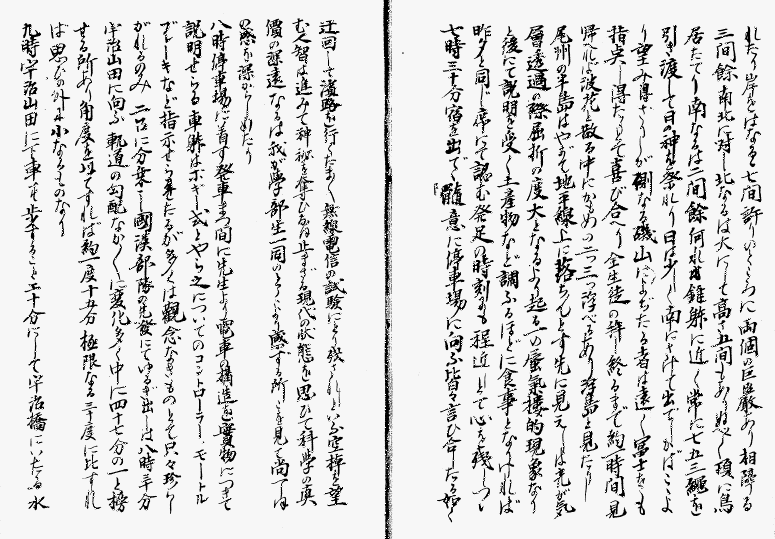 れたり岸をはなるゝ七間許りのところに両個の巨巌あり相隣る
三間餘南北に対し北なるは大にして高さ五間もあるべく頂に鳥
居たてり南なるは二間餘何れも錐躰に近く常に七五三縄を
引き渡して日の神を祭れり日は少しく南にかけて出でしかばこゝよ
り望み得ざりしが側なる磯山によぢたる者は遠く冨士をも
指点し得たりとて喜び合へり全生徒の拝し終るまで約一時間見
帰れば波花と散る中にかもめの二つ三つ浮べるあり浮島と見たりし
尾州の半島はやがて地平線上に落ちんとす先に見えしは光が気
層透過の際屈折の度大となるより起る一の蜃氣樓的現象なり
と後にて説明を受く土産物など調ふるほどに食事となりければ
昨夕と同じ席にて認む発足の時刻も程近しとて心を残しつゝ
七時三十分宿を出でゝ随意に停車場に向ふ皆々言ひ合したる如く
迂回して海路を行くたまたま無線電信の試験により残されしといふ空橰を望
む人智は進みて神秘を奪ひなほ止まざる現代の状態を思ひて科学の真
價の深遠なるは我が学部生一同のとりより感ずる所これを見て尚一しほ
の感を深からしめたり
八時停車場に着す発車を待つ間に先生より電車の構造を實物につきて
説明せらる車躰はボギー式とやら之についてのコントローラー、モートル
ブレーキなど指示せられ来たるが多くは観念なきものとて只々珍らし
がれるのみ 二台に分乗し國漢部隊の先發にてゆるぎ出しは八時半分
宇治山田に向ふ 軌道の勾配なかなかに変化多く中に四十七分の一と榜
する所あり角度を以てすれば約一度十五分極限なる三十度に比すれ
ば思ひの外に小なるものなり
九時宇治山田に下車す歩すること二十分にして宇治橋にいたる水